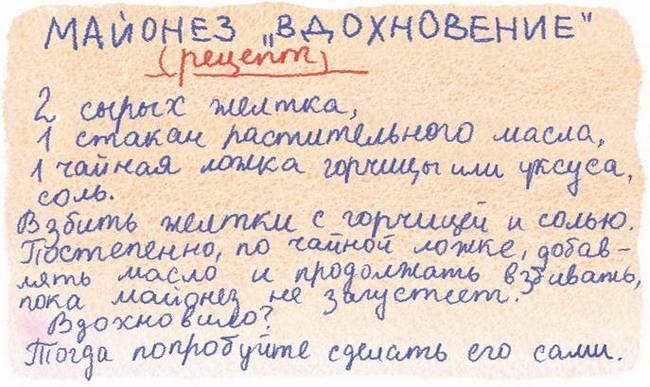 МАЙОНЕЗ „ВДОХНОВЕНИЕ"
(рецепт)
2 сырых желтка,
1 стакан растительного масла,
1 чайная ложка горчицы или уксуса,
соль.
Взбить желтки с горчицей и солью.
Постепенно, по чайной ложке, добав-
лять масло и продолжать взбивать,
пока майонез не загустеет.
Вдохновило?
Тогда попробуйте сделать его сами.